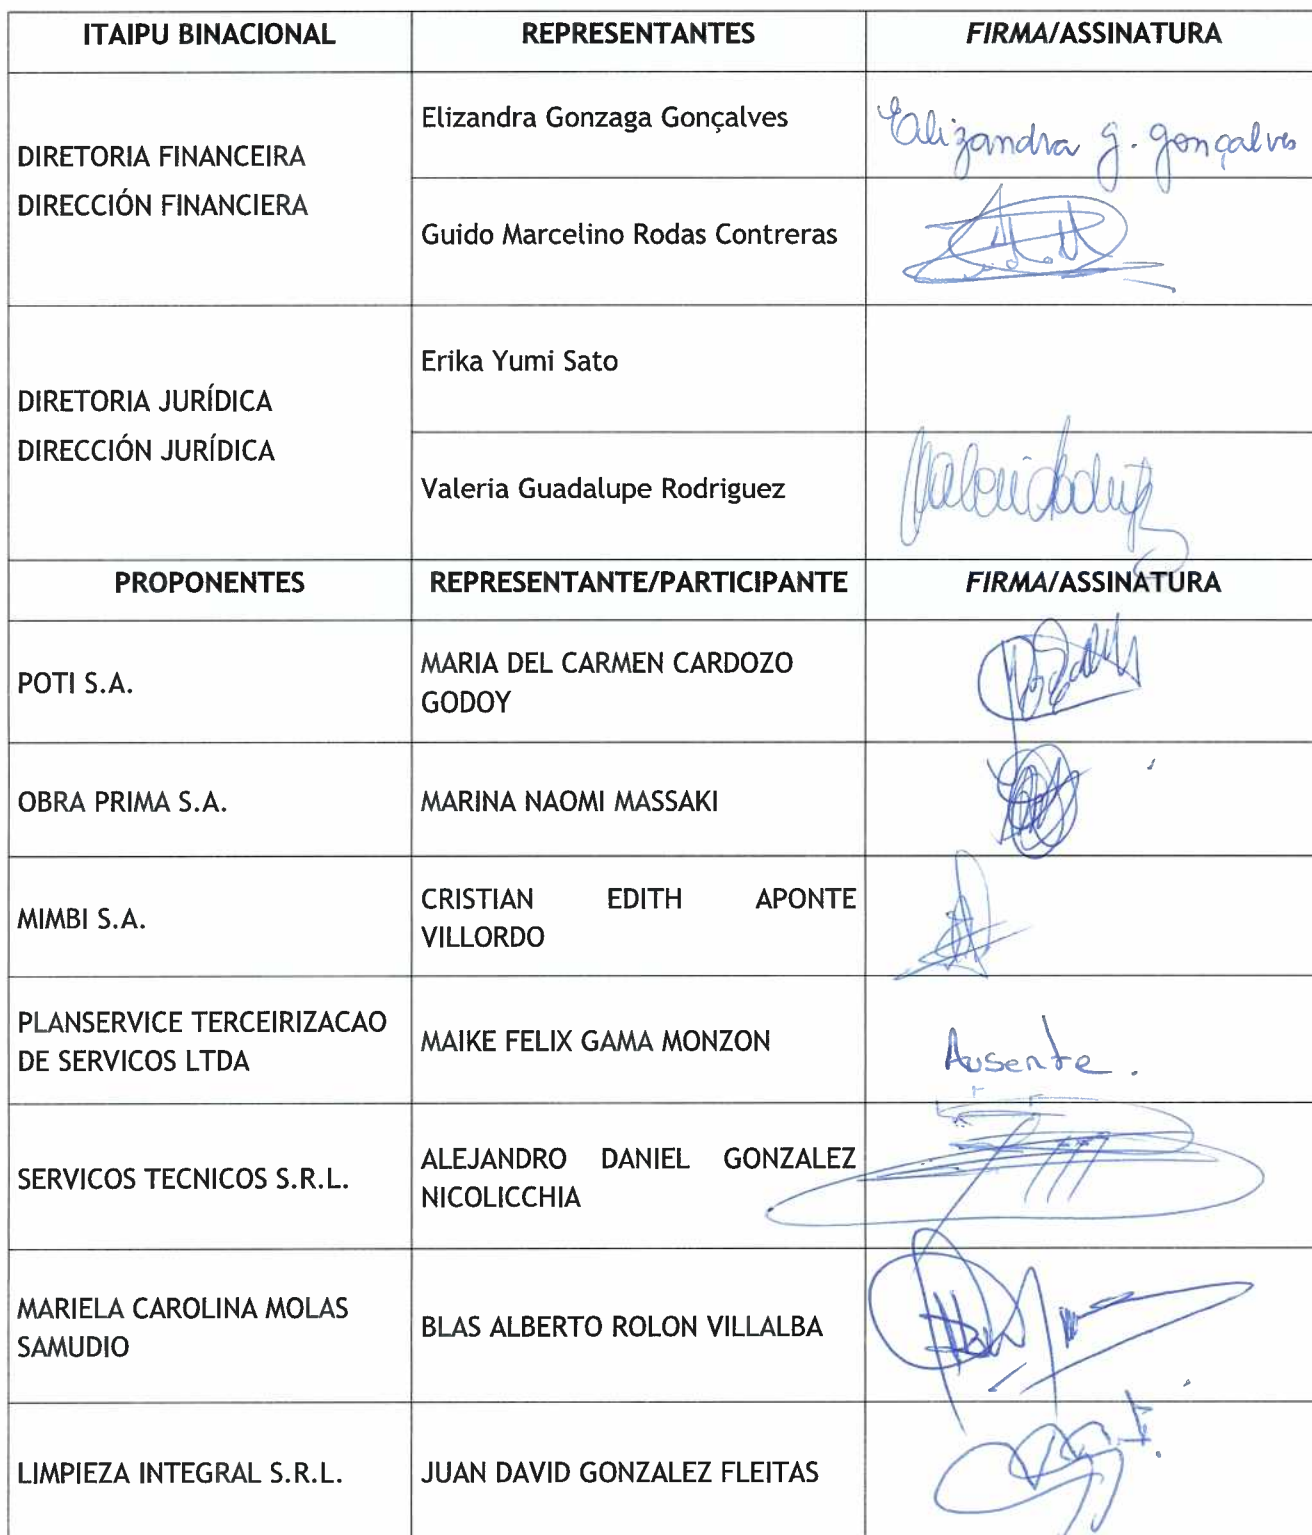 ITAIPU BINACIONAL REPRESENTANTES FIRMA/ASSINATURA
DIRETORIA FINANCEIRA
DIRECCIÓN FINANCIERA
Elizandra Gonzaga Gonçalves
Elizandra G. Gonçalves
Guido Marcelino Rodas Contreras
DIRETORIA JURÍDICA
DIRECCIÓN JURÍDICA
Erika Yumi Sato
Valeria Guadalupe Rodriguez
PROPONENTES REPRESENTANTE/PARTICIPANTE FIRMA/ASSINATURA
POTI S.A.
MARIA DEL CARMEN CARDOZO
GODOY
OBRA PRIMA S.A. MARINA NAOMI MASSAKI
MIMBI S.A.
CRISTIAN EDITH APONTE
VILLORDO
PLANSERVICE TERCEIRIZACAO
DE SERVICOS LTDA
MAIKE FELIX GAMA MONZON
Ausente.
SERVICOS TECNICOS S.R.L.
ALEJANDRO DANIEL GONZALEZ
NICOLICCHIA
MARIELA CAROLINA MOLAS
SAMUDIO
BLAS ALBERTO ROLON VILLALBA
LIMPIEZA INTEGRAL S.R.L. JUAN DAVID GONZALEZ FLEITAS